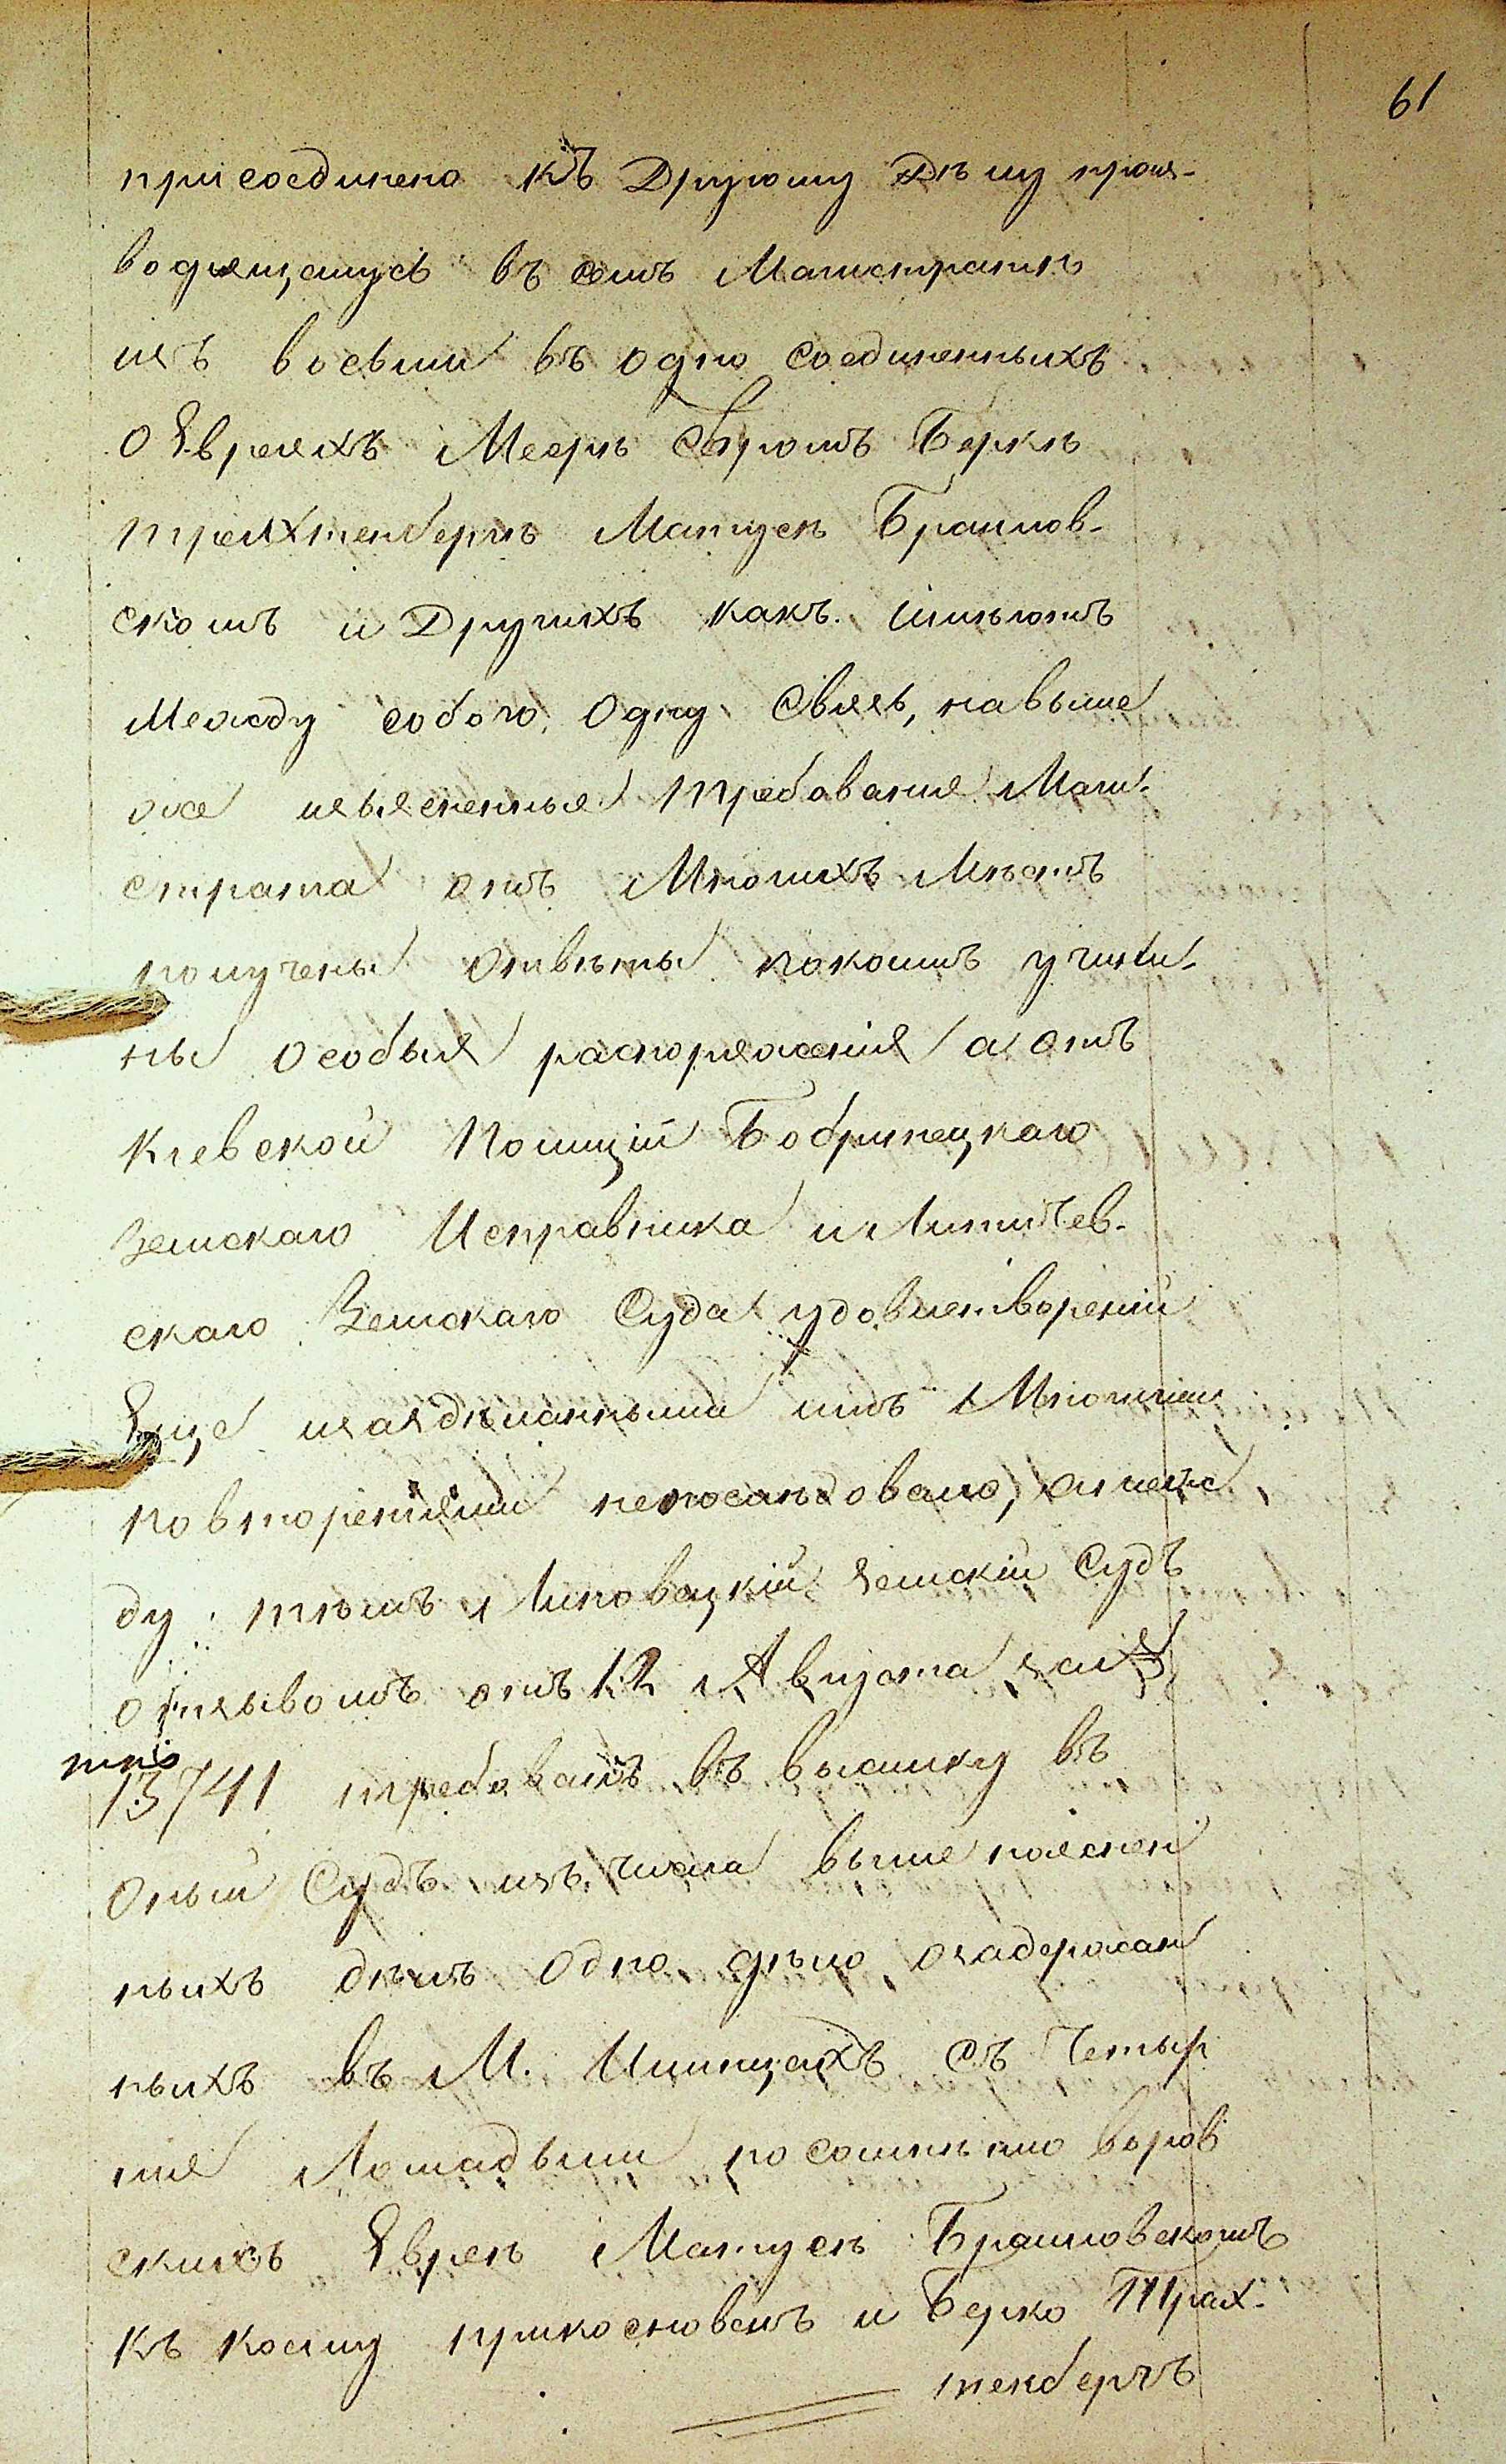 61
присоединено къ Другому Дѣлу произ-
водящемуся въ семъ Магистратѣ
изъ восьми въ одно соединенныхъ
о Евреяхъ Меерѣ Беркѣ
трахтенбергѣ Матусѣ Браилов-
скомъ и Другихъ какъ имѣютъ
Между собою одну Связь, на выше
же изъясненныя Требованія Маги-
страта отъ Многихъ Мѣстъ
получены отвѣты покоимъ учине-
ны особыя распоряженія а отъ
Кіевской Полиціи Бобринецкаго
Земскаго Исправника и Литичев-
скаго Земскаго Суда удовлетвореній
Еще изаздѣланными имъ Многими
повтореніями непослѣдовало, а между
ду тѣмъ Липовецкій Земскій Судъ
отзывомъ отъ 12 Августа за №
13741 требовалъ въ высылку въ
оный Судъ изъ числа выше пояснен
ныхъ дѣлъ одно дѣло озадержан
ныхъ въ М. Илинцахъ съ Четыр
мя Лошадьми посомнѣнію воров
скихъ Евреѣ Матусѣ Браиловскомъ
къ коему прикосновенъ и Берко Трах-
тенбергъ